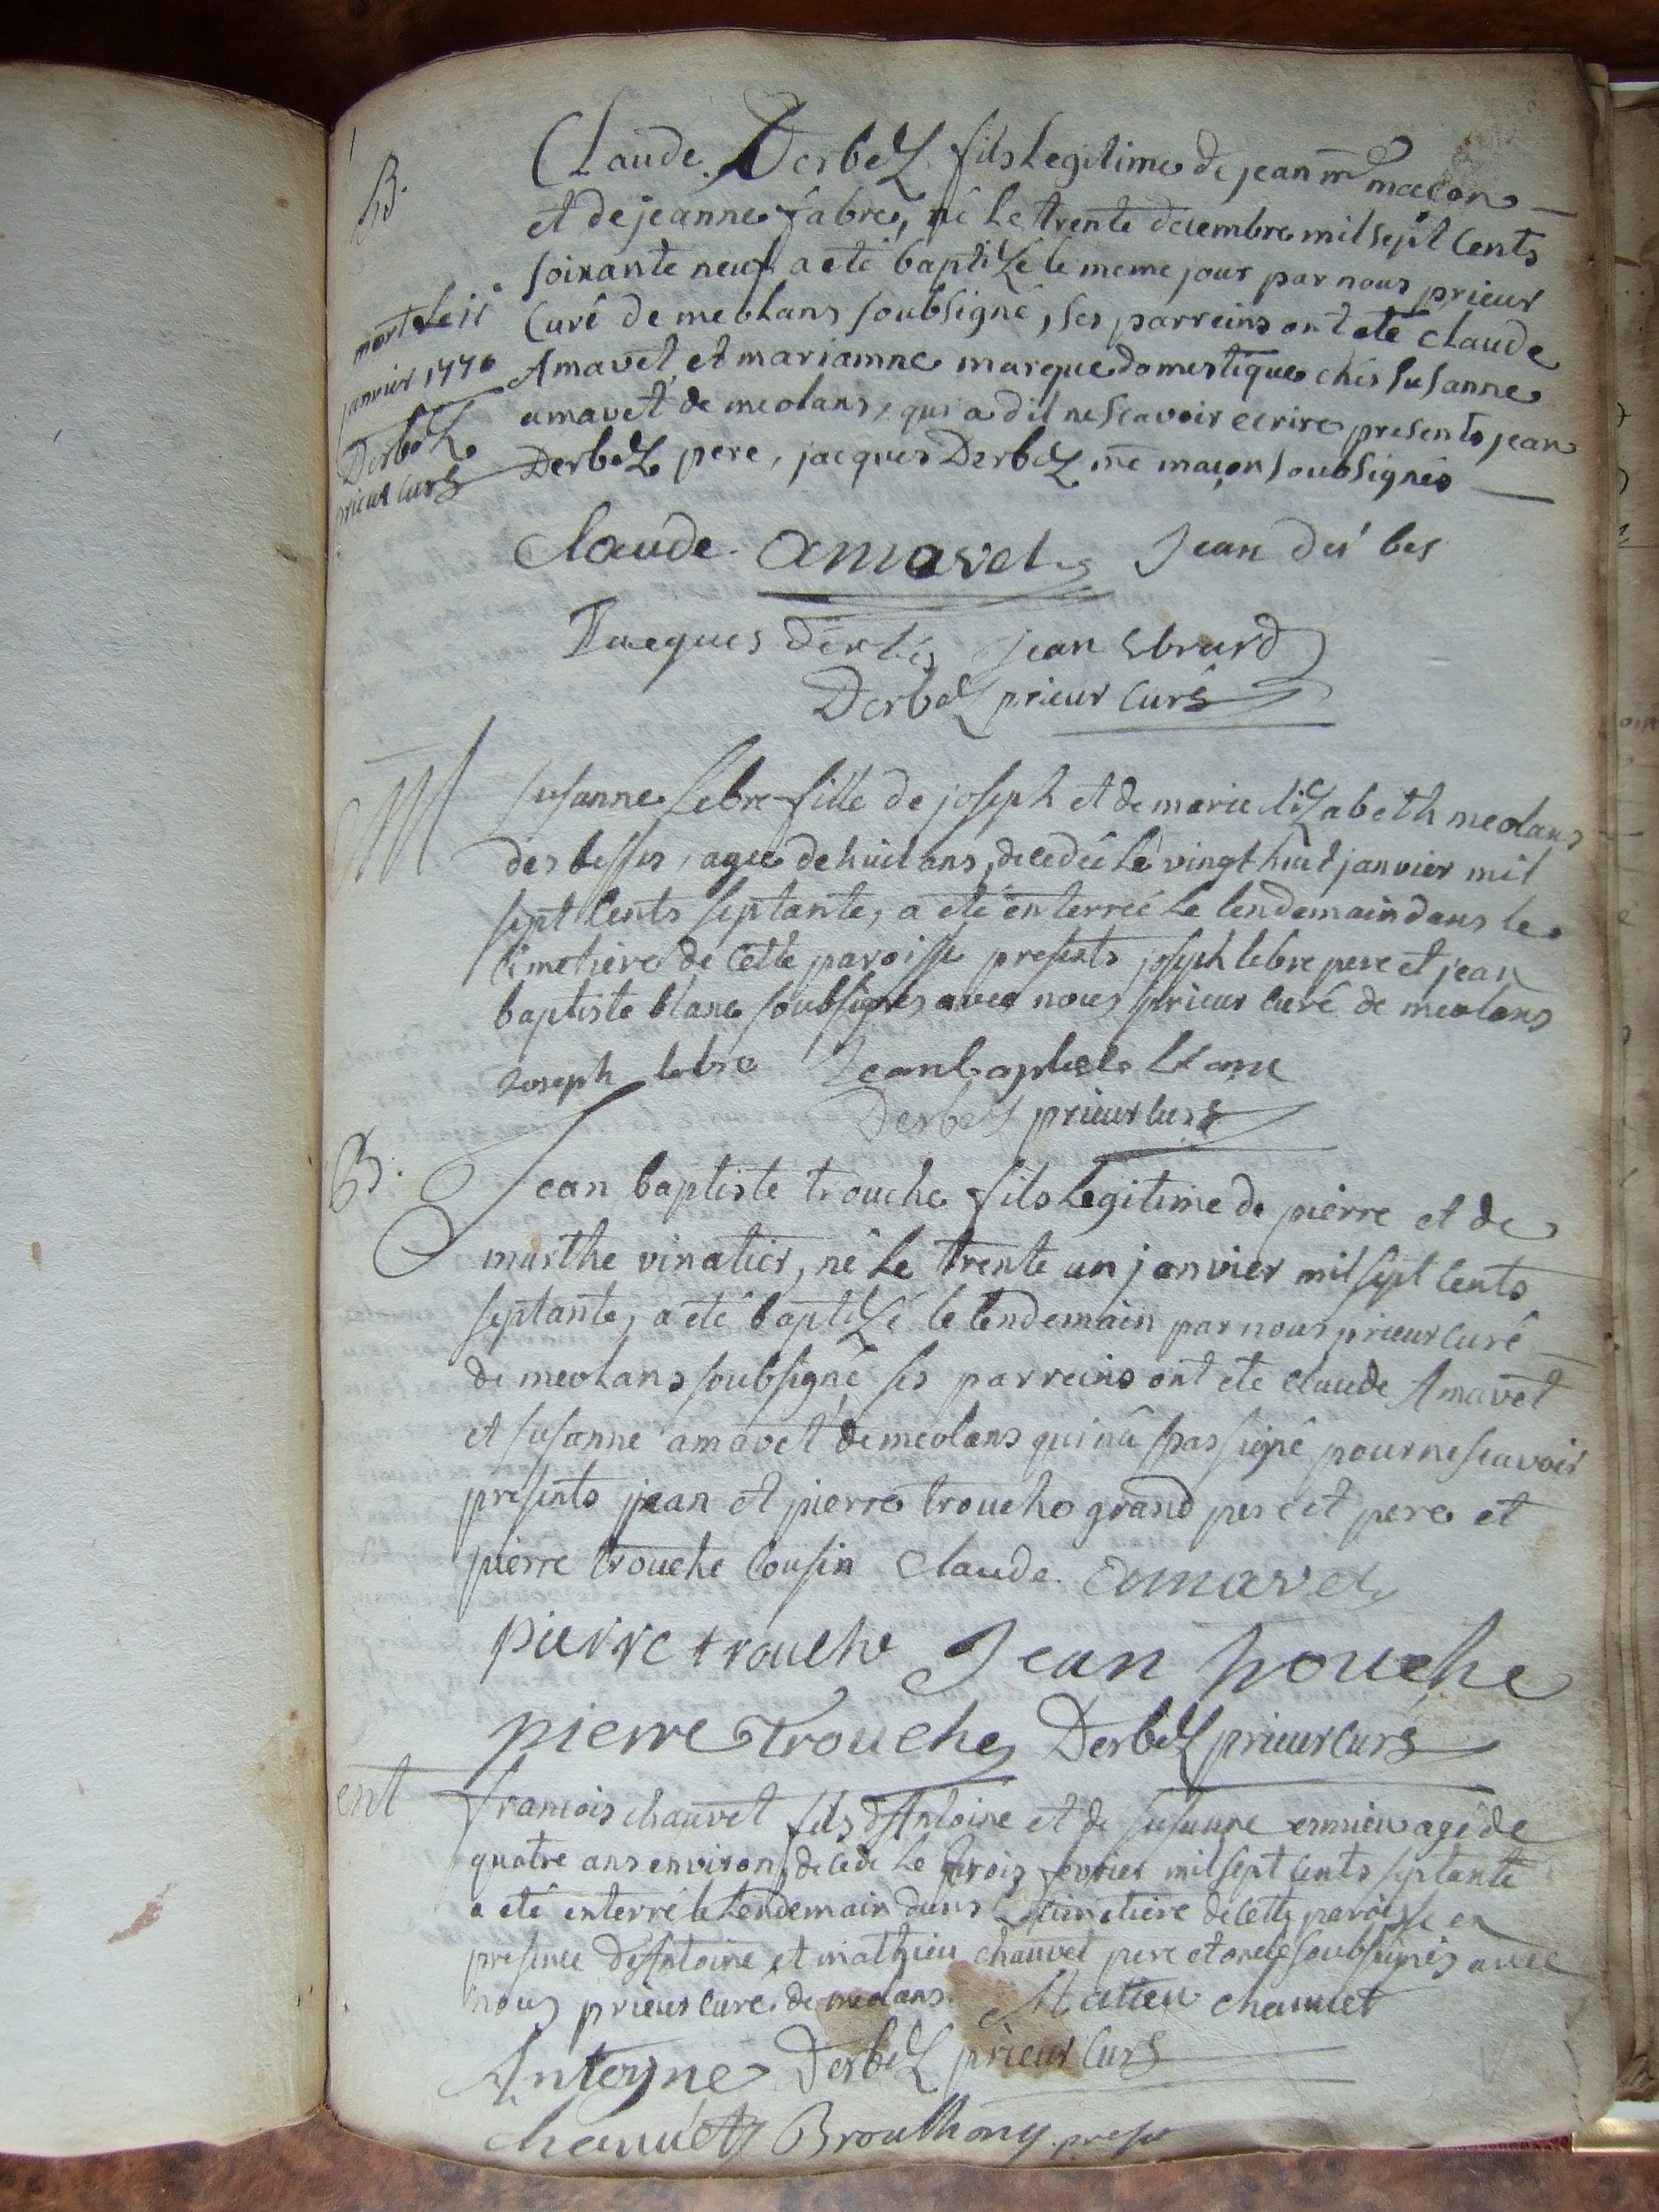 B.
Claude Derbez fils legitime de jean me macon
et de jeanne fabre, né le trente decembre mil sept cents
soixante neuf a eté baptizé le meme jour par nous prieur
Curé de meolans soubsigné, ses parreins ont eté claude
Amavet et marianne marque domestique chés susanne
amavet de meolans, qui a dit ne scavoir ecrire presents jean
Derbez pere, jacques Derbez me maçon soubsignés
mort le 11
janvier 1770
Derbez
prieur curé
Claude amavet Jean derbes
Jacques derbés jean Ebrard
Derbez prieur curé
M
susanne lebre fille de joseph et de marie elizabeth meolans
des besses, agée de huit ans, decedée le vingt huit janvier mil
sept cents septante, a eté enterrée le lendemain dans le
cimetiere de cette paroisse presents joseph lebre pere et jean
baptiste blanc soubsignés avec nous prieur curé de meolans
Joseph lebre Jean baptiste blanc
Derbez prieur curé
B.
Jean baptiste trouche fils legitime de pierre et de
marthe vinatier, né le trente un janvier mil sept cents
septante, a eté baptizé le lendemain par nous prieur curé
de meolans soubsigné ses parreins ont eté claude Amavet
et susanne amavet de meolans qui n'a pas signé pour ne scavoir
presents jean et pierre trouche grand pere et pere et
pierre trouche cousin Claude amavet
pierre trouche Jean trouche
pierre trouche Derbez prieur curé
ent
francois chauvet fils d'Antoine et de susanne ermieu agé de
quatre ans environ, decedé le trois fevrier mil sept cents septante
a eté enterré le lendemain dans le cimetiere de cette paroisse en
presence d'Antoine et mathieu chauvet pere et oncle soubsignés avec
nous prieur curé de meolans. Matieu chauvet
Antoyne Derbez prieur curé
chauvet